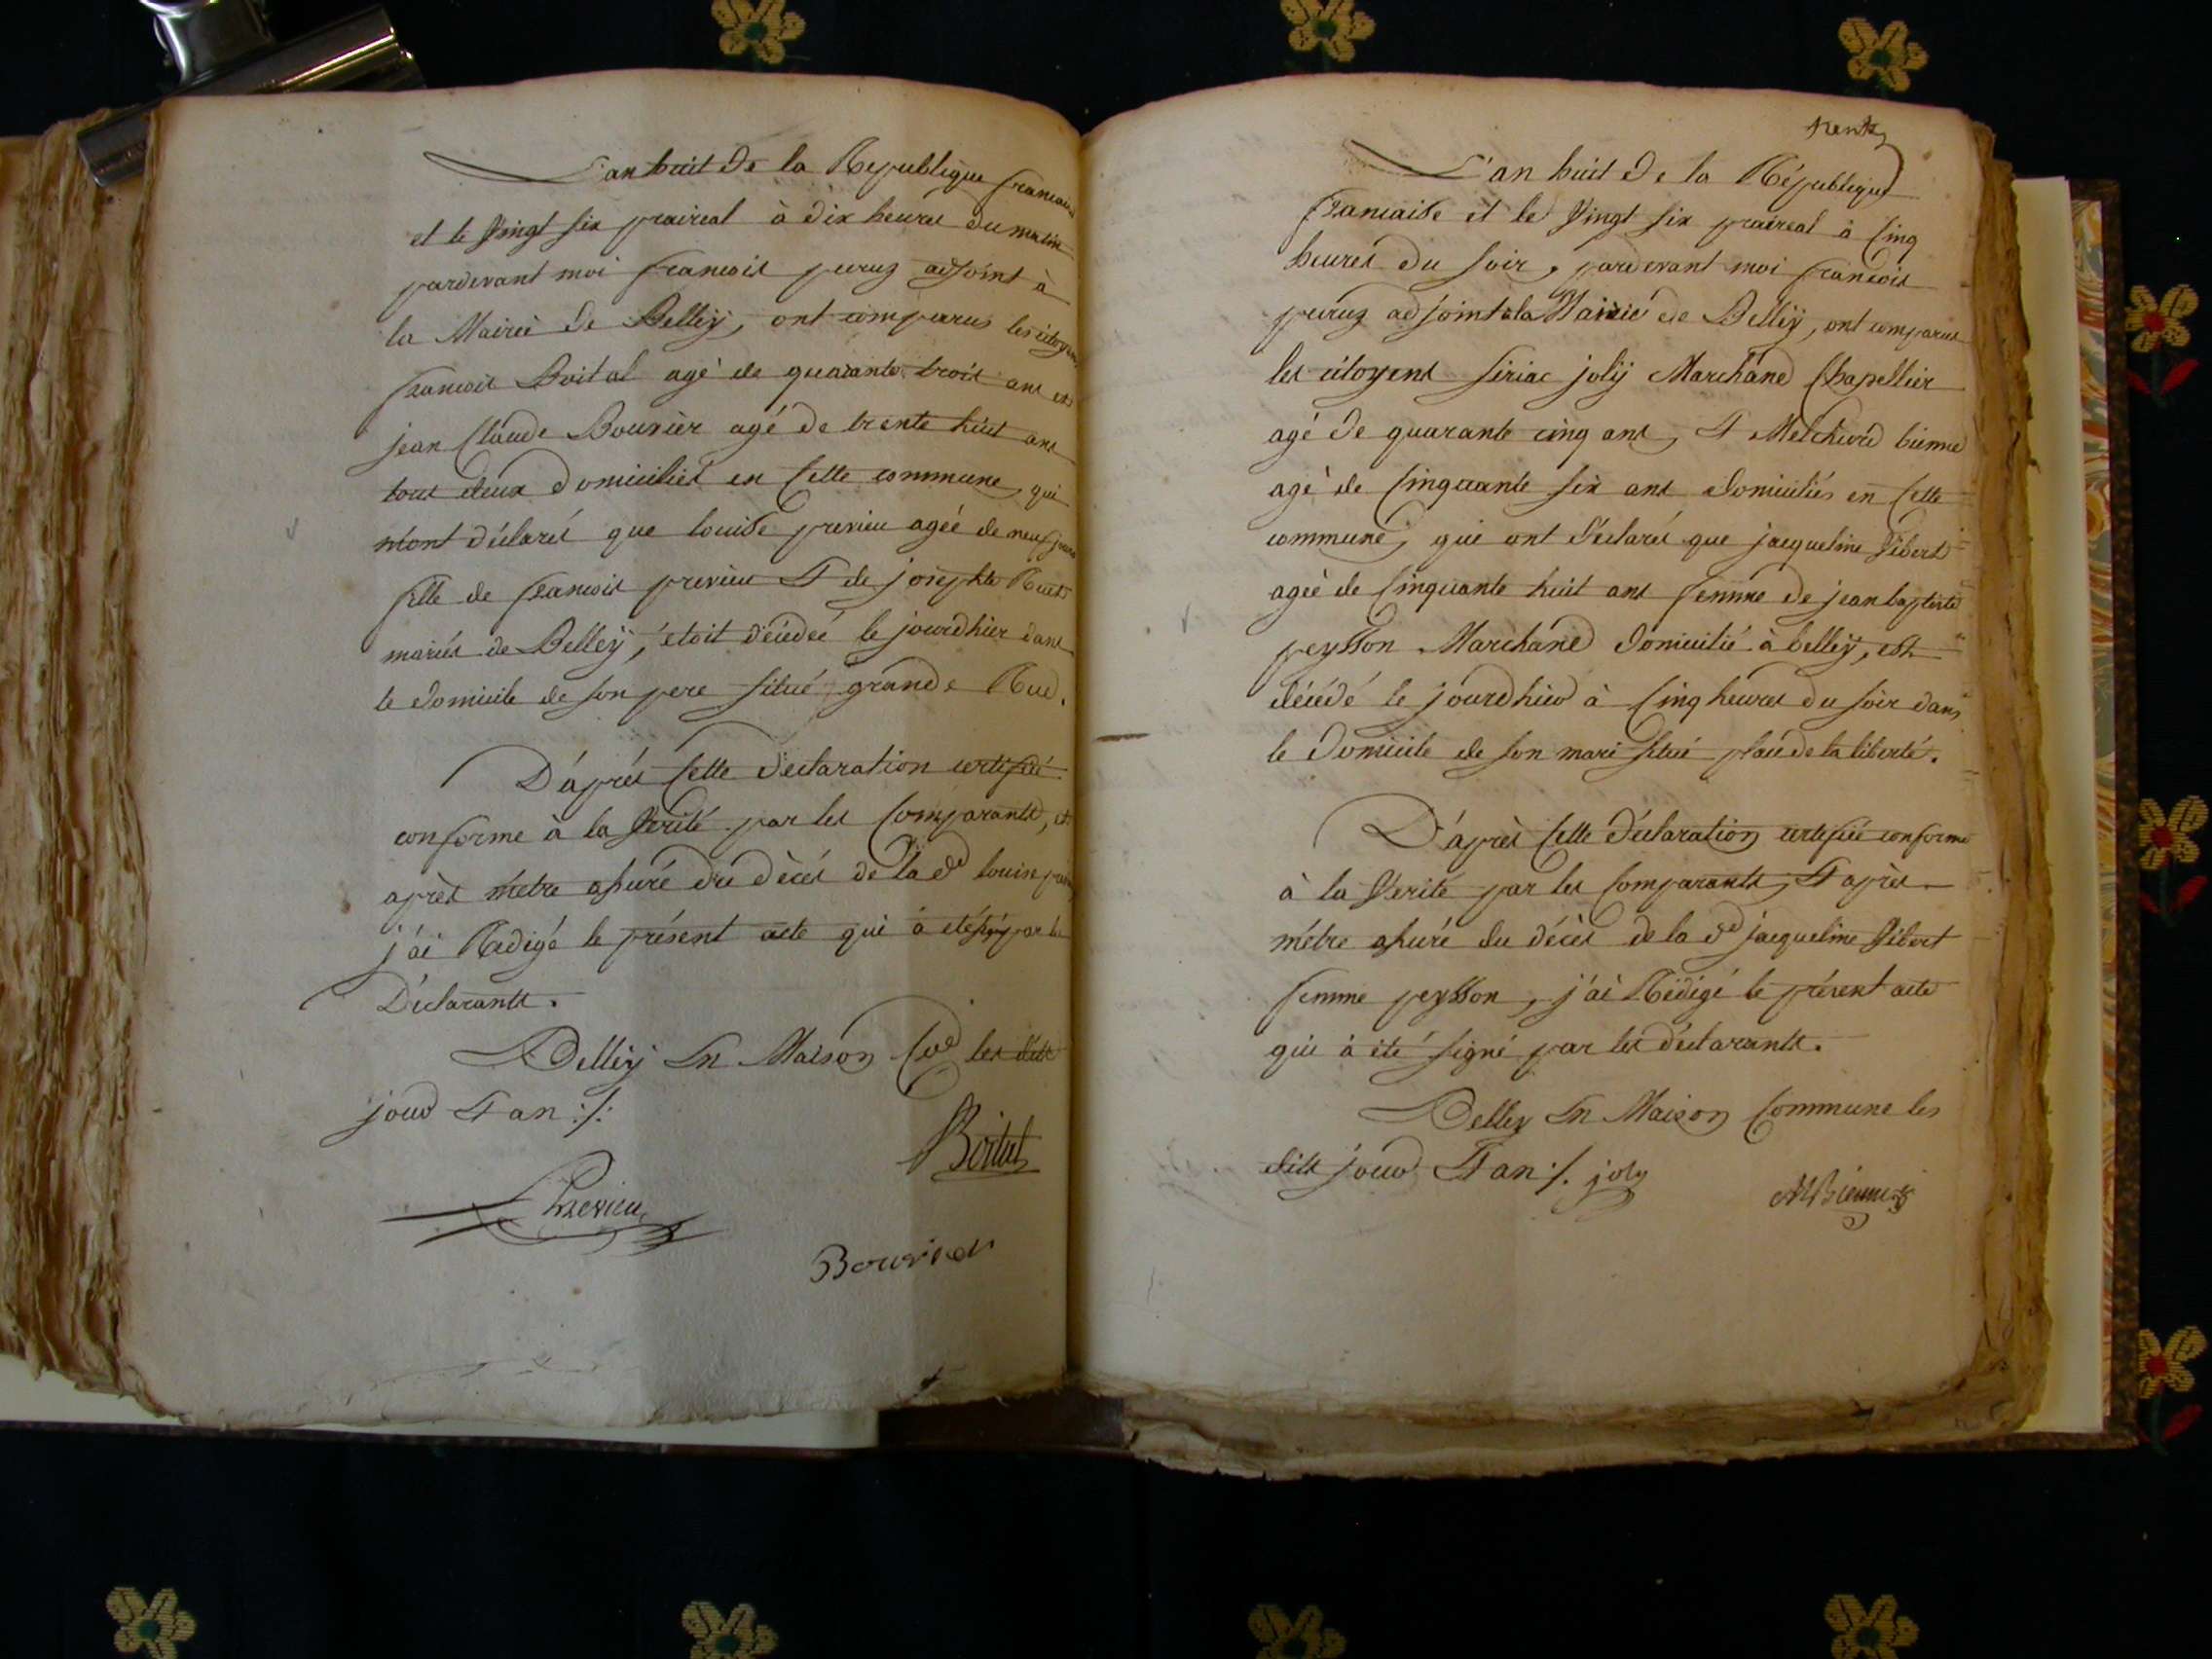 L'an huit de la Republique francaise
et le Vingt six praireal à dix heures du matin
pardevant moi francois peruz adjoint à
la Mairie de Belley, ont comparus les citoyens
francois Boital agé de quarante trois ans et
jean Claude Bouvier agé de trente huit ans
tous deux domiciliés en Cette commune, qui
m'ont déclarés que louise prerieu agée de neuf jours
fille de francois prerieu & de josephte Ruet
mariés de Belley, étoit décédée le jourdhier dans
le domicile de son pere situé grande Rue.
D'aprés Cette déclaration certifiée
conforme à la Verité par les Comparants, et
après m'etre assuré du décés de la de louise
j'ai Redigé le présent acte qui à été signé par les
Déclarants.
Belley En Maison Cne les dits
jour & an ./.
Boital
Prerieu
Bouvier
trente
L'an huit de la République
francaise et le Vingt six praireal à Cinq
heures du soir, pardevant moi francois
peruz adjoint à la Mairie de Belley, ont comparus
les citoyens siriac joly Marchand Chapellier
agé de quarante cinq ans, & Melchior bienne
agé de Cinquante six ans domiciliés en Cette
commune, qui ont déclarés que jacqueline Vibert
agée de Cinquante huit ans femme de jean baptiste
peysson Marchand domicilié à belley, est
décédé le jourdhier à Cinq heures du soir dans
le domicile de son mari situé place de la liberté.
D'après Cette déclaration certifiée conforme
à la Verité par les Comparants, & après
m'étre assuré du décès de la de jacqueline Vibert
femme peysson, j'ai Rédigé le présent acte
qui à été signé par les déclarants.
Belley En Maison Commune les
dits jour & an ./. joly
MBienne